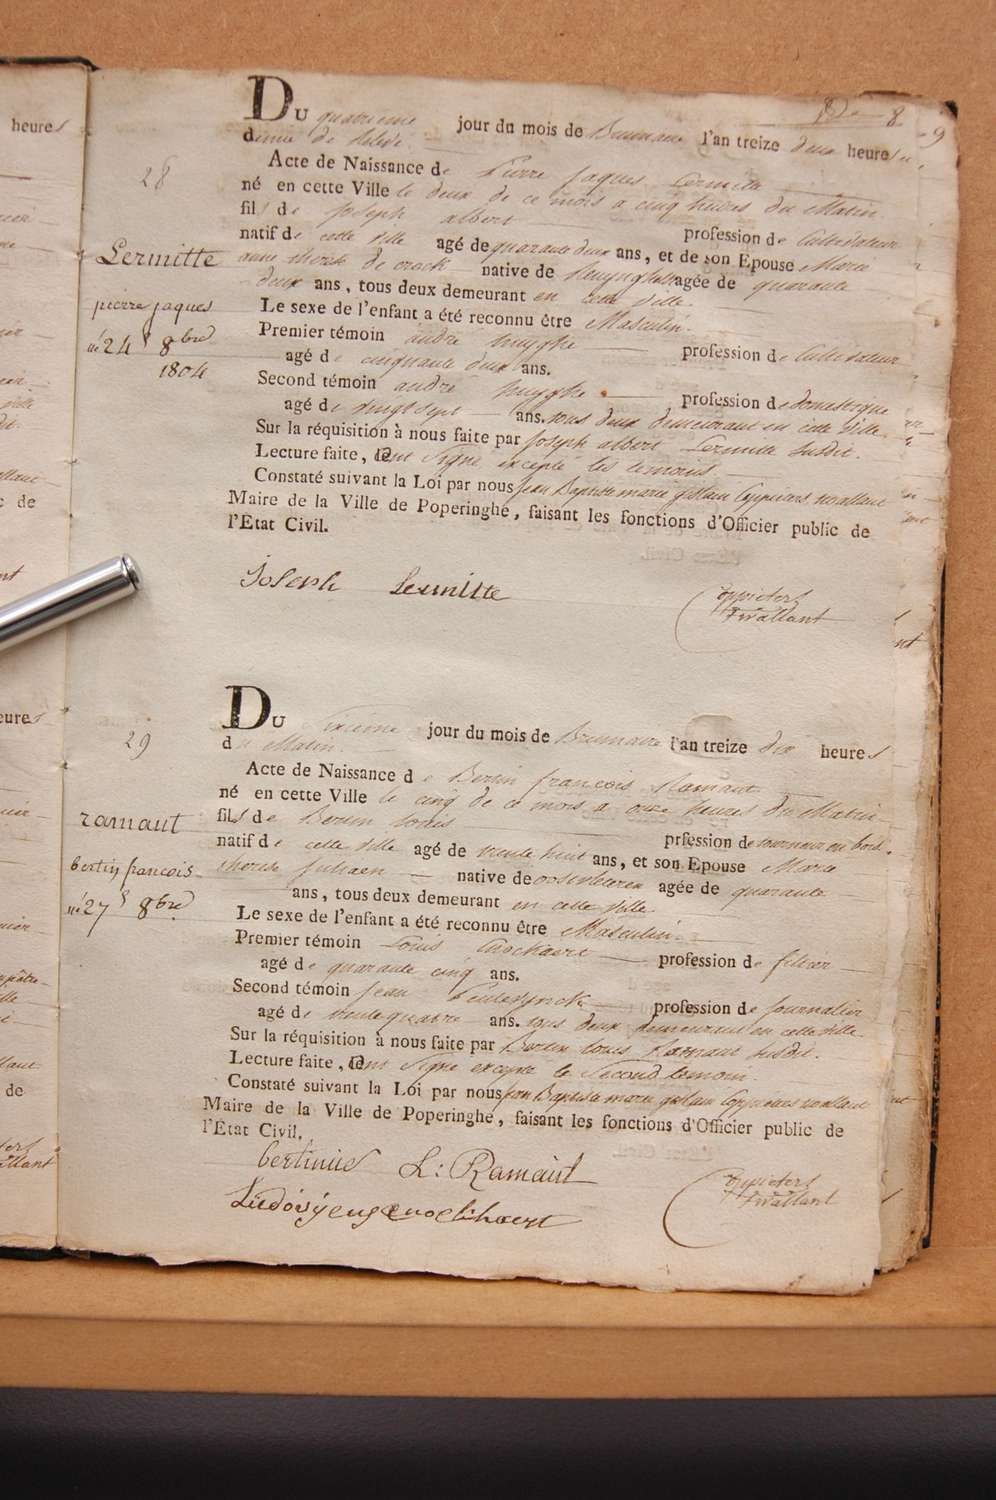 heures
8 9
DU quatrieme jour du mois de Brumaire l'an treize deux heures
28
Acte de Naissance de Pierre Jaques Lermitte
né en cette Ville le deux de ce mois a cinq heures du Matin
fils de Joseph albert profession de Cultivateur
natif de cette ville agé de quarante deux ans, et de son Epouse Marie
Lermitte
anne therese de crock native de agée de quarante
deux ans, tous deux demeurant en cette ville
Le sexe de l'enfant a été reconnu être Masculin.
pierre jaques
Premier témoin andré huyghe profession de Cultivateur
né 24 8bre
agé de cinquante deux ans.
1804
Second témoin andré huyghe profession de domestique
agé de vingt sept ans. tous deux demeurant en cette ville
Sur la réquisition à nous faite par Joseph albert Lermitte susdit.
Lecture faite, ont signé excepté les temoins
Constaté suivant la Loi par nous Jean Baptiste marie gislain Coppieters wallant
Maire de la Ville de Poperinghe, faisant les fonctions d'Officier public de
l'Etat Civil.
Joseph Lermitte
Coppieters
Twallant
DU sixieme jour du mois de Brumaire l'an treize dix heures
29
du Matin.
Acte de Naissance de Bertin françois Ramaut
né en cette Ville le cinq de ce mois a onze heures du Matin
ramaut
fils de Bertin Louis prfession de tourneur en bois.
natif de cette ville agé de trente huit ans, et son Epouse Marie
bertin francois
therese Juliaen native de oostvleteren agée de quarante
né 27 8bre
ans, tous deux demeurant en cette ville
Le sexe de l'enfant a été reconnu être Masculin.
Premier témoin Louis profession de
agé de quarante cinq ans.
Second témoin Jean profession de journalier
agé de trente quatre ans. tous deux demeurant en cette ville
Sur la réquisition à nous faite par Bertin Louis Ramaut susdit.
Lecture faite, ont signé excepté le second temoin
Constaté suivant la Loi par nous Jean Baptiste marie gislain Coppieters wallant
Maire de la Ville de Poperinghe, faisant les fonctions d'Officier public de
l'Etat Civil.
bertinus L: Ramaut
Coppieters
Twallant